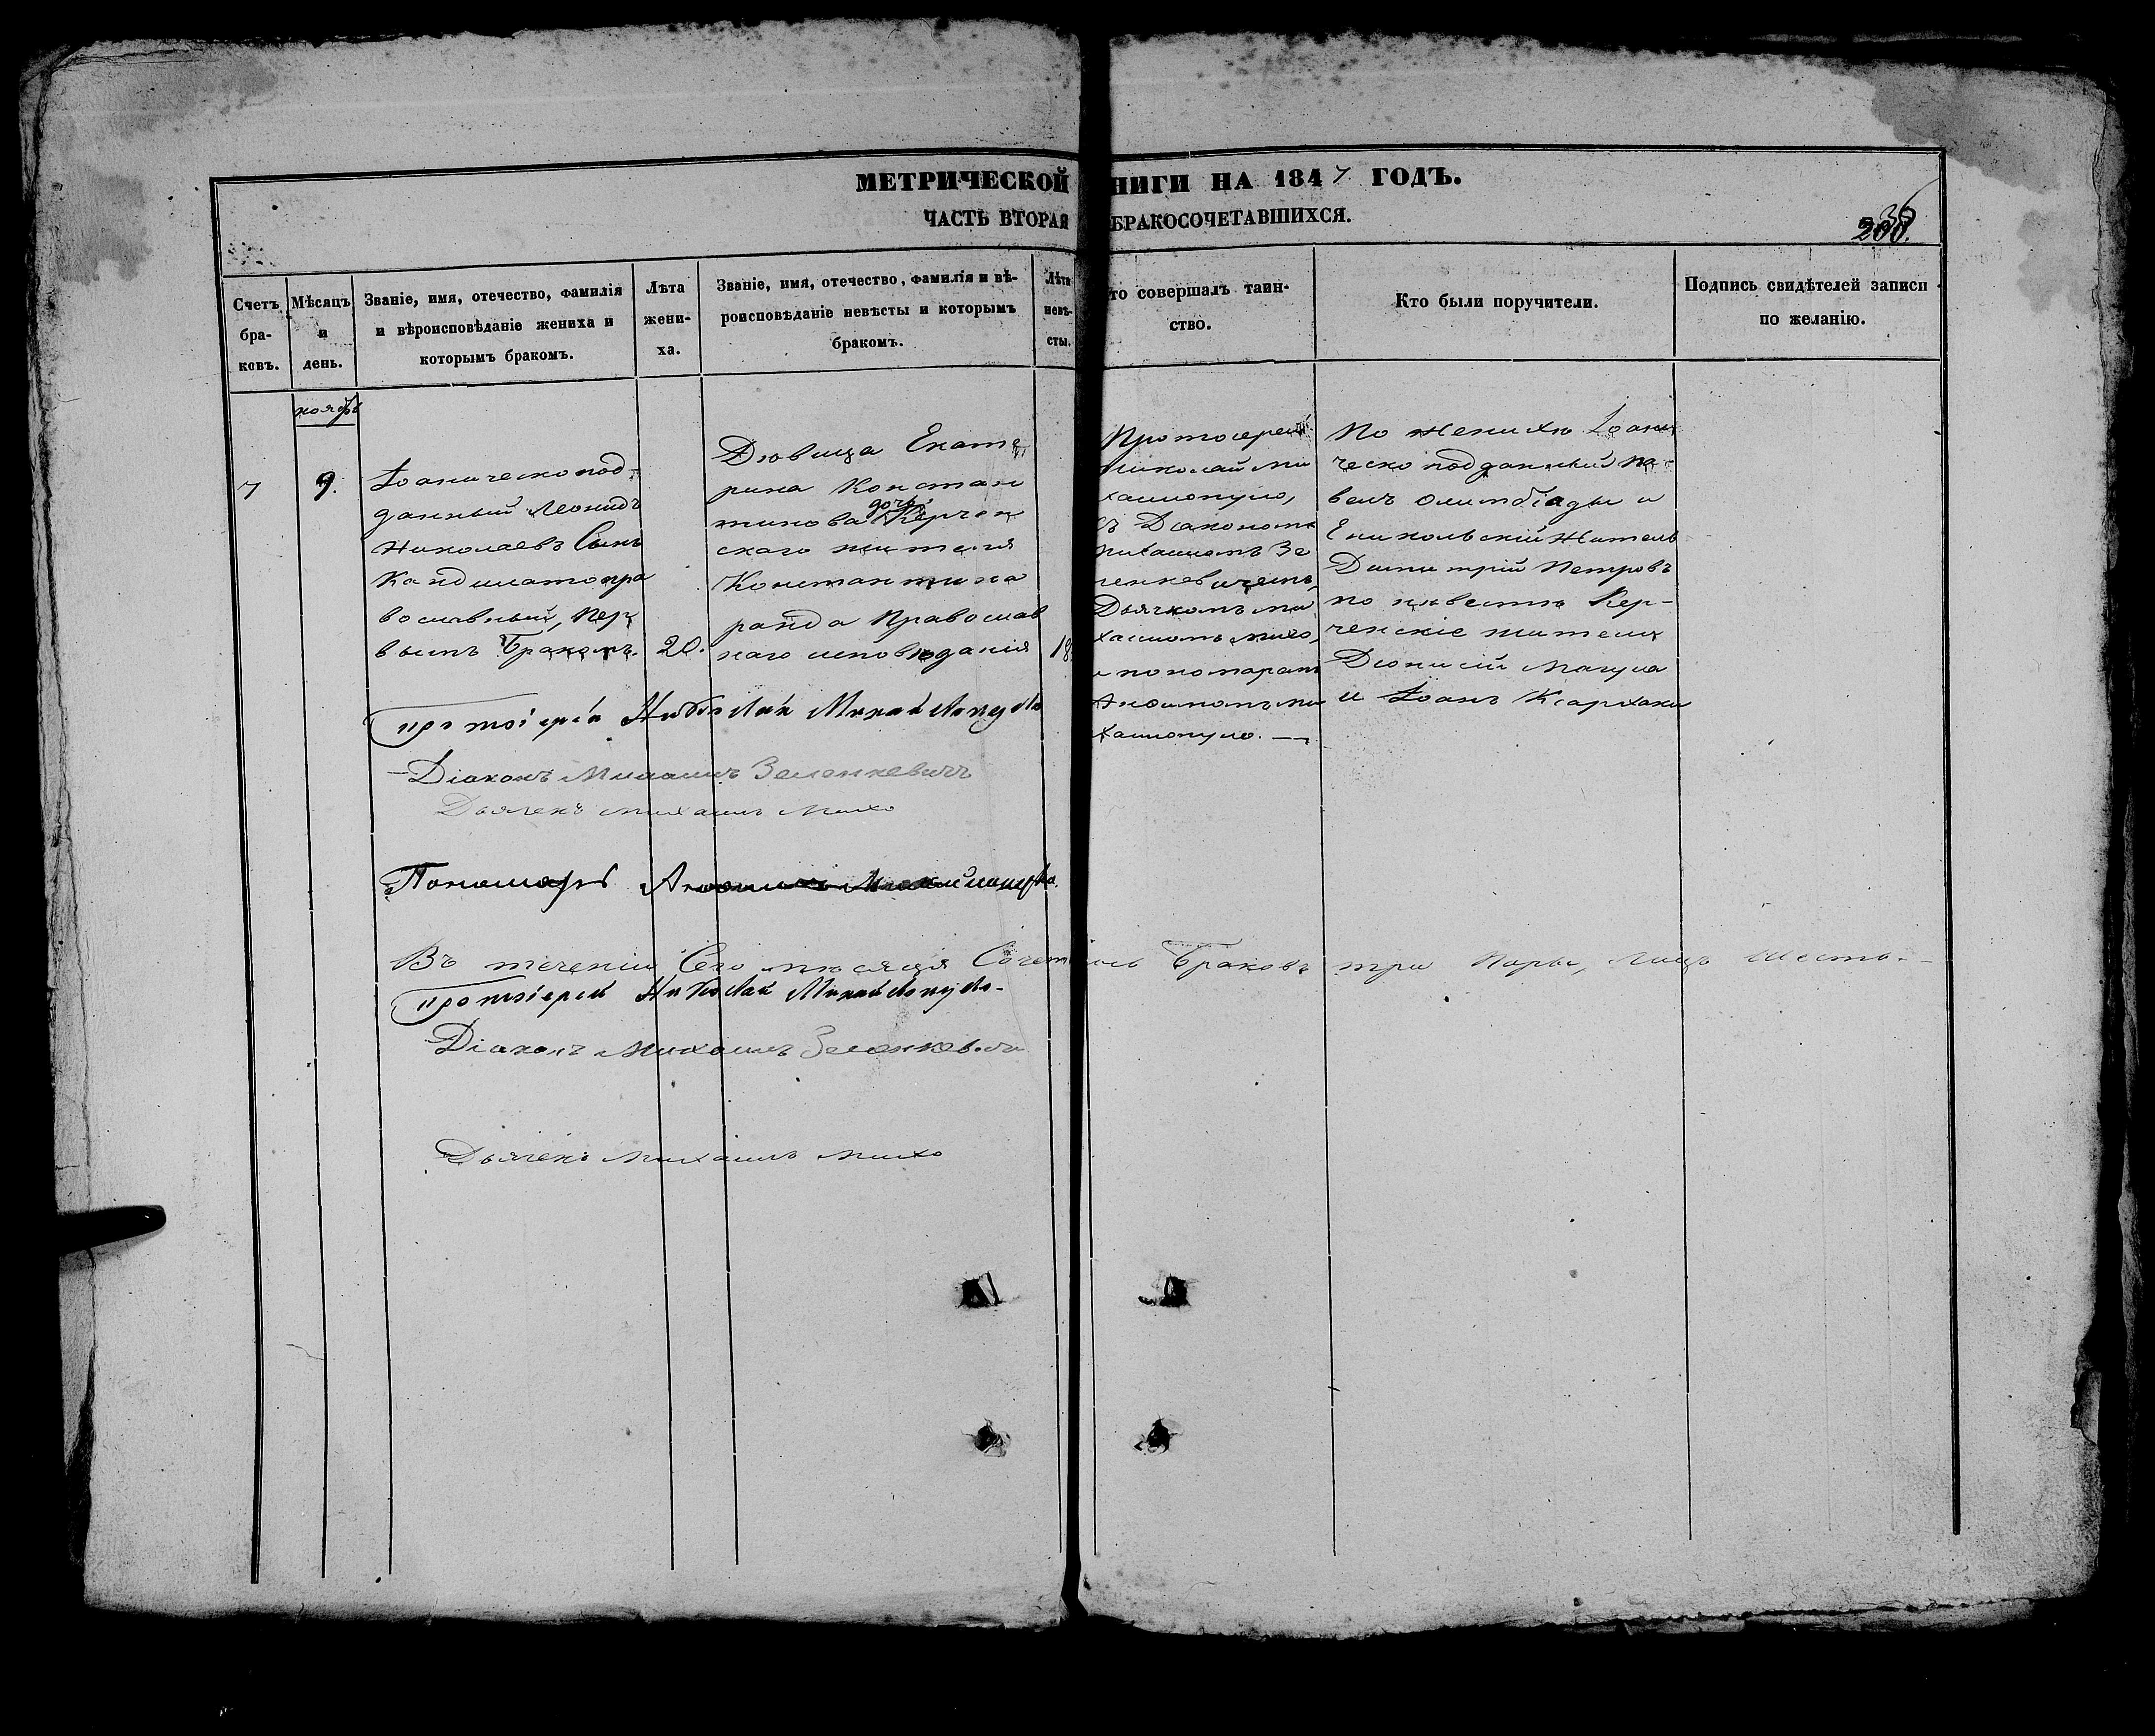 МЕТРИЧЕСКОЙ НИГИ НА 1847 ГОДЪ.
ЧАСТЬ ВТОРАЯ БРАКОСОЧЕТАВШИХСЯ.
Счетъ бра- ковъ.
Мѣсяцъ и день.
Званіе, имя, отечество, фамилія
и вѣроисповѣданіе жениха и
которымъ бракомъ.
Лѣта жени- ха.
Званіе, имя, отечество, фамилія и вѣ-
роисповѣданіе невѣсты и которымъ
бракомъ.
Лѣта невѣ- сты.
то совершалъ таин-
ство.
Кто были поручители.
Подпись свидѣтелей записи
по желанію.
ноябрь
7
9.
Іоаническо под-
данный Леонидъ
Николаевъ Сынъ
Кандилато пра
вославный, пер
вымъ Бракомъ.
20.
Дѣвица Екате
рина Констан
тинова дочь Керчен
скаго жителя
Константина
ранда Православ
наго исповѣданія
18
Протоіерей
Николай Ми
хаилопуло,
съ Діакономъ
Михаиломъ Зе
ленкевичемъ,
Дьячкомъ Ми
хаиломъ Михо,
и пономаремъ
Анфимомъ Ми
хаилопуло.
По женихѣ Іоани
ческо подданный Па
велъ Олимбіады и
Еникольскій житель
Дмитрій Петровъ
по невѣстѣ Кер-
ченскіе жители
Діонисій Магула
и Іоанъ Ксархаки
протоіерей Николай Михайлопуло
Діаконъ Михаилъ Зеленкевичъ
Дьячекъ Михаилъ Михо
Пономарь Анфимъ Михаилопуло.
Въ теченіи Сего мѣсяца Сочеталось Браковъ три Пары, Лицъ шесть.
протоіерей Николай Михайлопуло.
Діаконъ Михаилъ Зеленкевичъ
Дьячекъ Михаилъ Михо